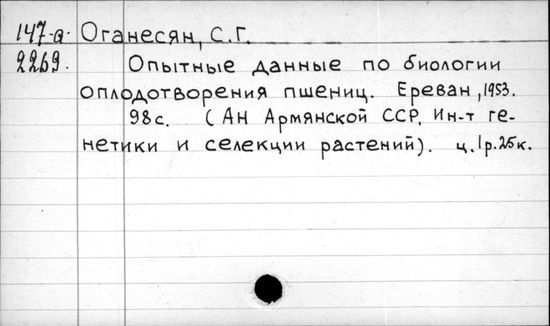 147-а- Оганесян, С.Г.
2269. Опытные данные по биологии
оплодотворения пшениц. Ереван, 1953.
98с. (АН Армянской ССР. Ин-т ге-
нетики и селекции растений). ц. 1р.25к.